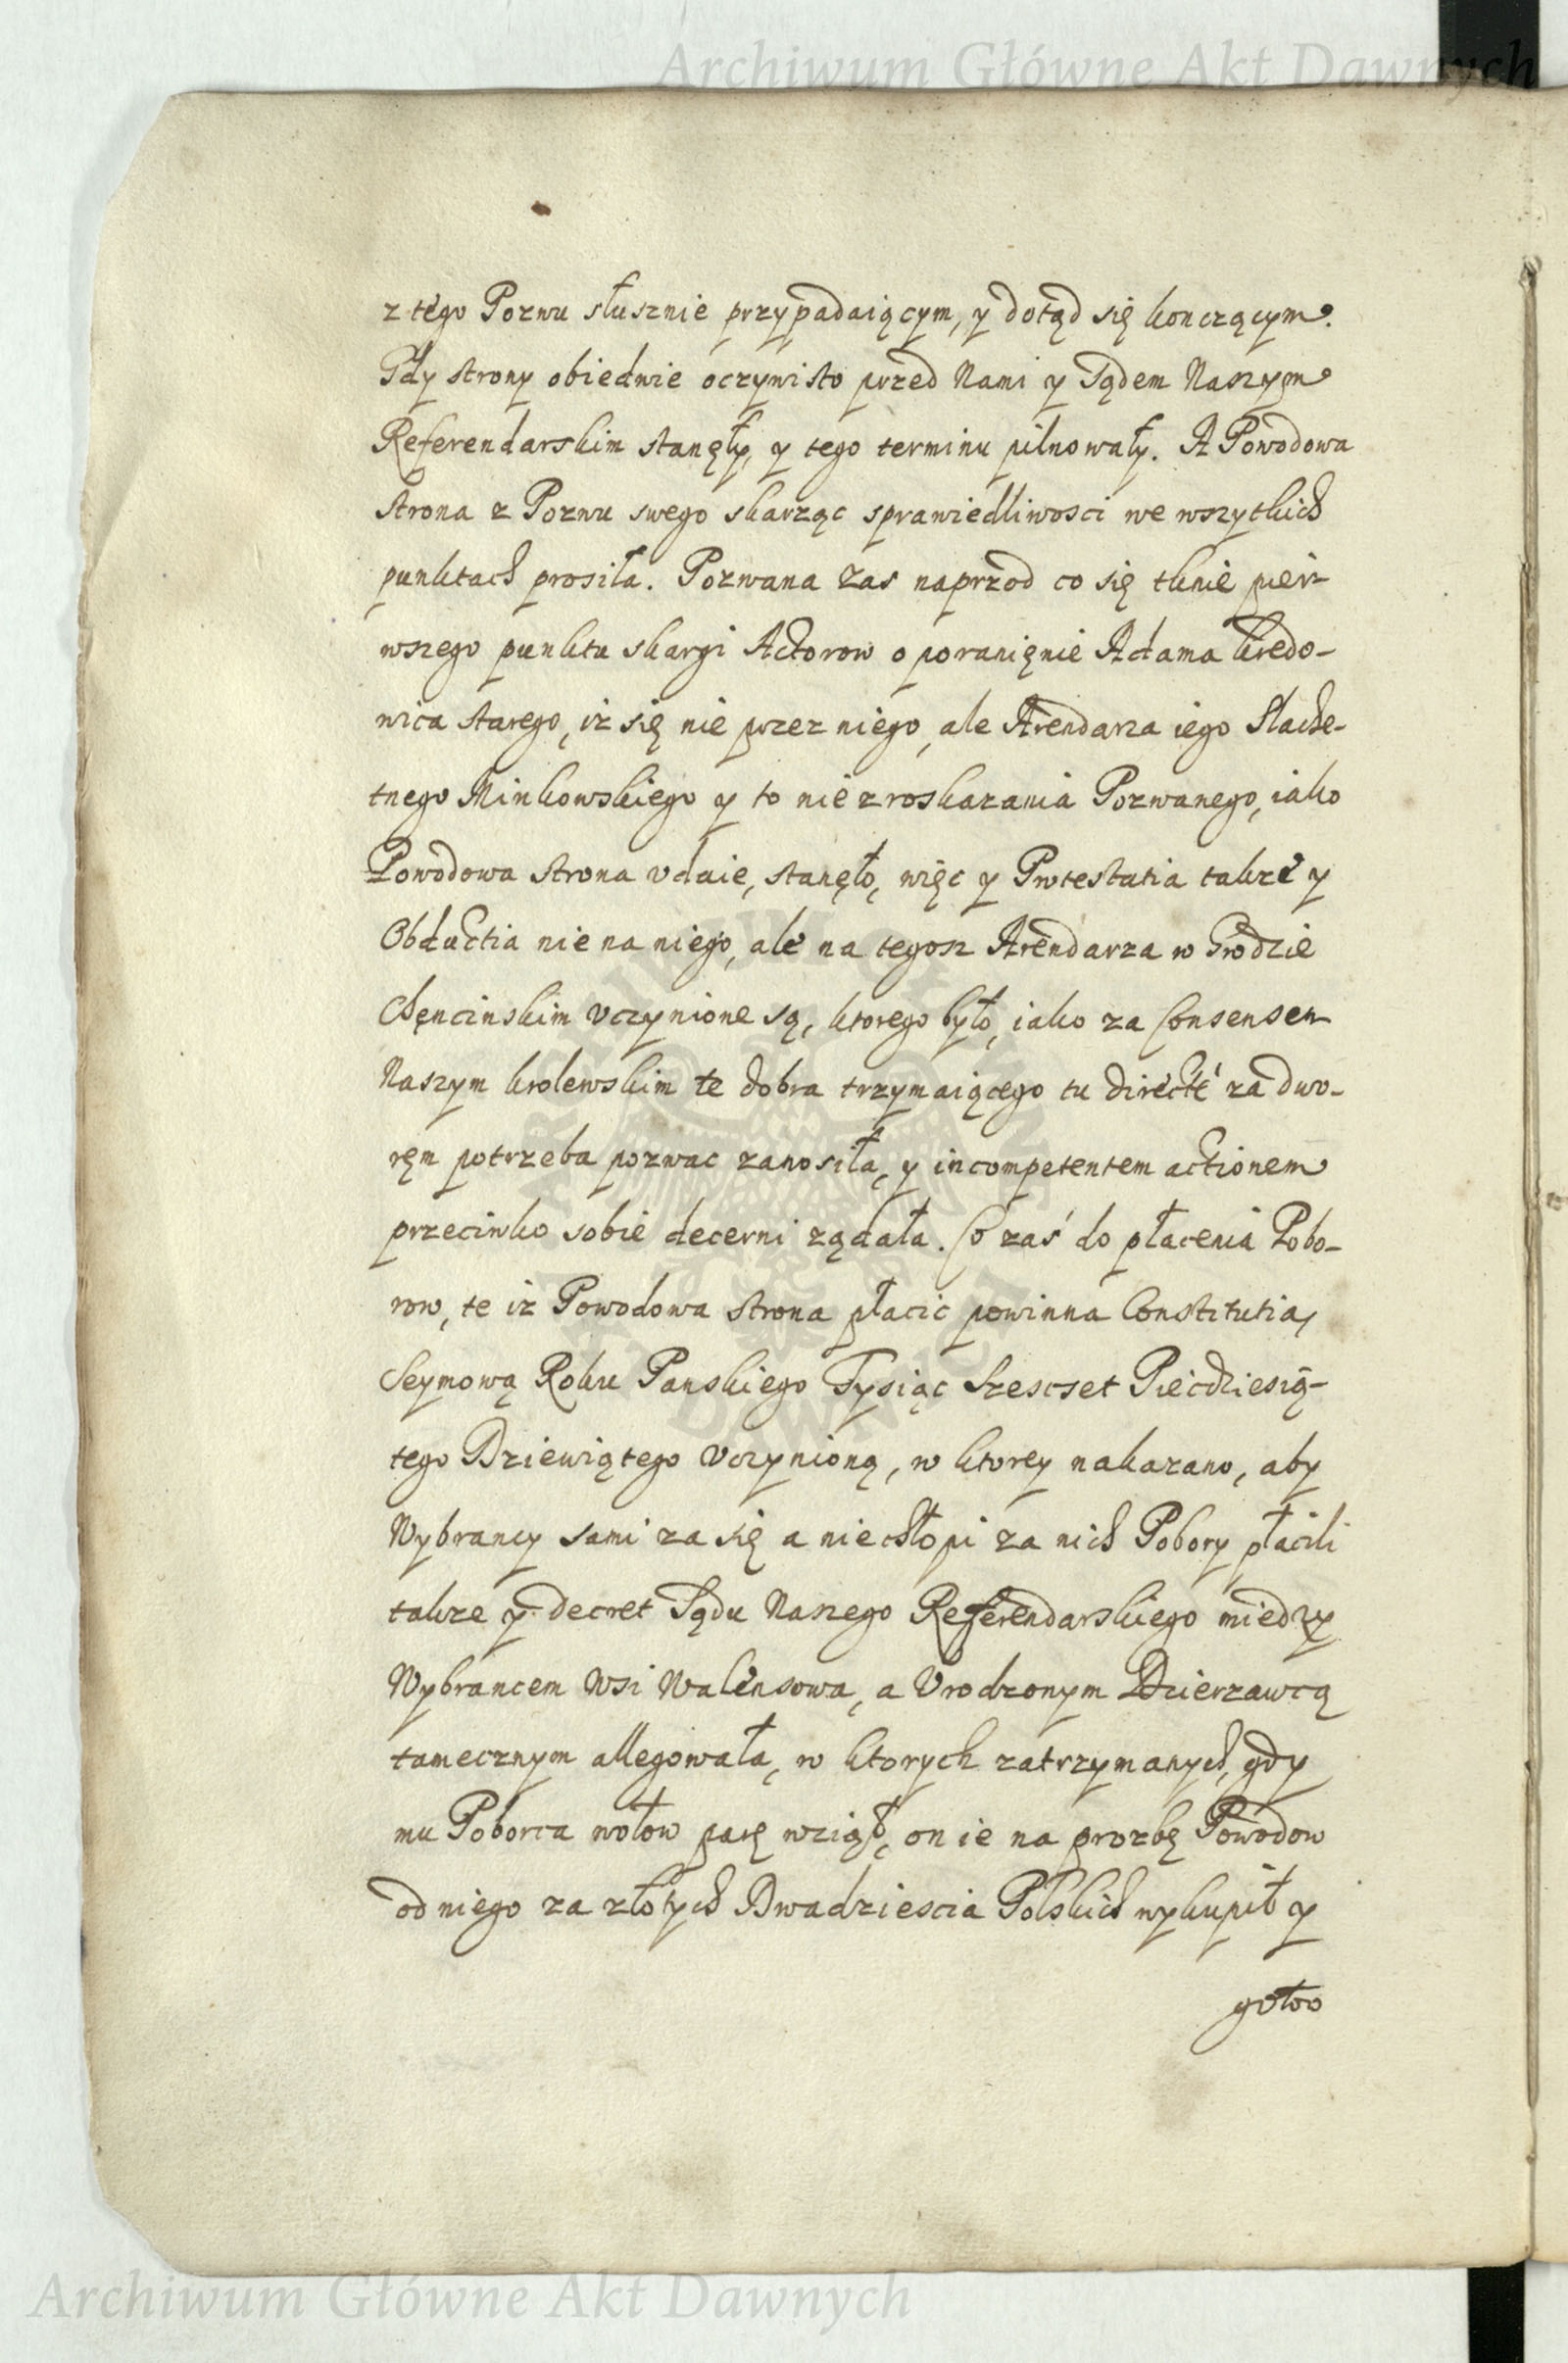 Archiwum Główne Akt Dawnych
z tego Pozwu słusznie przypadaiącym, y dotąd się konczącym.
Gdy strony obiedwie oczywisto przed Nami y Sądem Naszym
Referendarskim stanęły, y tego terminu pilnowały. A Powodowa
strona z Pozwu swego skarząc sprawiedliwosci we wszytkich
punktach prosiła. Pozwana zas naprzod co się tknie pier-
wszego punktu skargi Actorow o poranięnie Adama kredo-
wica starego, iz się nie przez niego, ale Arendarza iego Slache-
tnego Minkowskiego y to nie z roskazania Pozwanego, iako
Powodowa strona vdaie, stanęło, więc y Protestatia takze y
Obductia nie na niego, ale na tegosz Arendarza w Grodzie
Chęncinskim vczynione są, ktorego było, iako za Consensem
Naszym krolewskim te dobra trzymaiącego tu directè za dwo-
ręm potrzeba pozwac zanosiła, y incompetentem actionem
przeciwko sobie decerni ządała. Co zaś do płacenia Pobo-
row, te iz Powodowa strona płacic powinna Constitutią
Seymową Roku Panskiego Tysiąc Szescset Piecdziesią-
tego Dziewiątego vczynioną, w ktorey nakazano, aby
Wybrancy sami za się a nie chłopi za nich Pobory płacili
takze y decret Sądu Naszego Referendarskiego miedzy
Wybrancem Wsi Walensowa, a Vrodzonym Dzierzawcą
tamecznym allegowała, w ktorych zatrzymanych, gdy
mu Poborca wołow parę wziął, on ie na prozbę Powodow
od niego za złotych Dwadziescia Polskich wykupił y
gotow
Archiwum Główne Akt Dawnych